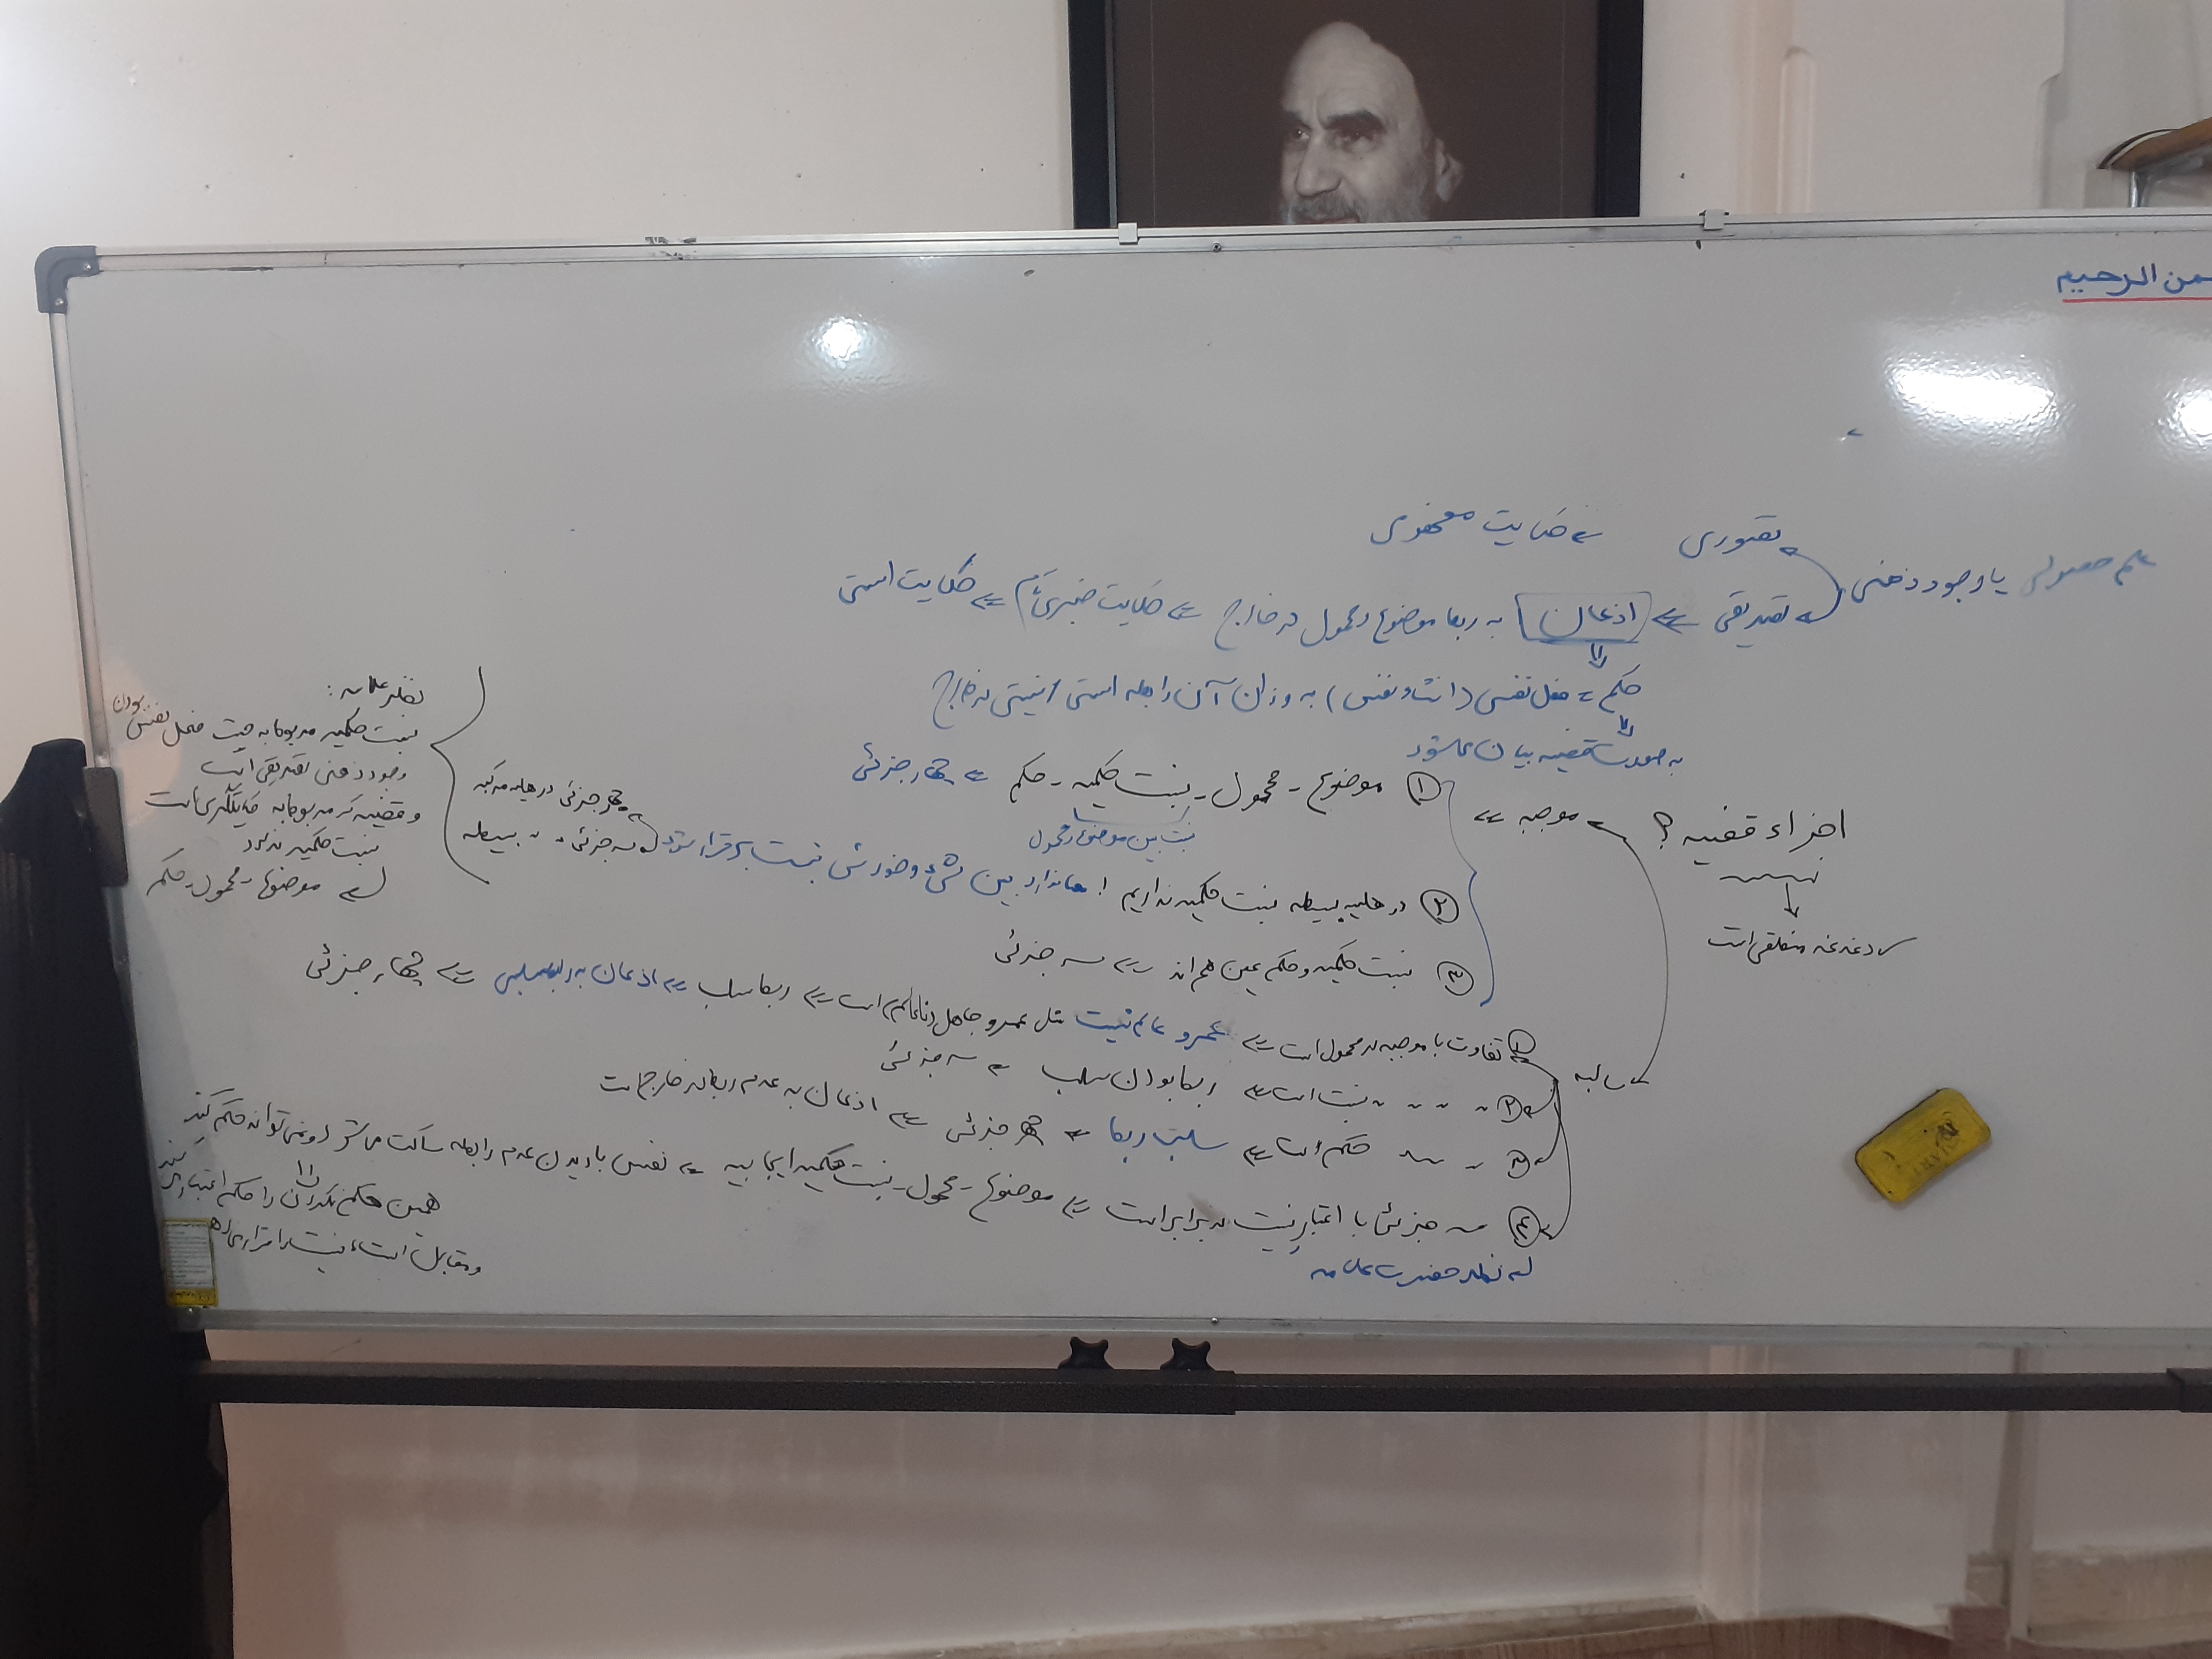 من الرحیم
تصوری ⇐ حکایت مفهومی
علم حصولی یا وجود ذهنی
تصدیقی ⇐ اذعان به ربط موضوع و محمول در خارج ⇐ حکایت خبری تام ⇐ حکایت استی
حکم = فعل نفس (انشاء نفس) به وزان آن رابطه استی / نیستی در خارج
به صورت قضیه بیان می‌شود
اجزاء قضیه؟
دغدغه منطقی است
موجبه ⇐
① موضوع - محمول - نسبت حکمیه - حکم ⇐ چهار جزئی
نسبت بین موضوع و محمول
② در هلیه بسیطه نسبت حکمیه نداریم ! معنا ندارد بین شیء و خودش نسبت برقرار شود
چهار جزئی در هلیه مرکبه
سه جزئی 〃 〃 بسیطه
③ نسبت حکمیه و حکم عین هم اند ⇐ سه جزئی
نظر علامه:
نسبت حکمیه مربوط به حیث فعل نفس بودن
وجود ذهنی تصدیقی است
و قضیه که مربوط به حکایتگری است
نسبت حکمیه ندارد
موضوع - محمول - حکم
سالبه
① تفاوت با موجبه در محمول است ⇐ عمرو عالم نیست مثل عمرو جاهل (ناعالم) است ⇐ ربط سلب ⇐ اذعان به ربط سلبی ⇐ چهار جزئی
② 〃 〃 〃 نسبت است ⇐ ربط بودن سلب ⇐ سه جزئی
③ 〃 〃 حکم است ⇐ سلب ربط ⇐ چهار جزئی ⇐ اذعان به عدم ربط در خارج است
④ سه جزئی با اعتبار نسبت در برابر است ⇐ موضوع - محمول - نسبت حکمیه ایجابیه ⇐ نفس با دیدن عدم رابطه ساکت می‌شود و نمی‌تواند حکم کند
نظر حضرت علامه
همین حکم نکردن را حکم اعتبار می‌کند
و مقابل است، نیست را قرار می‌دهد